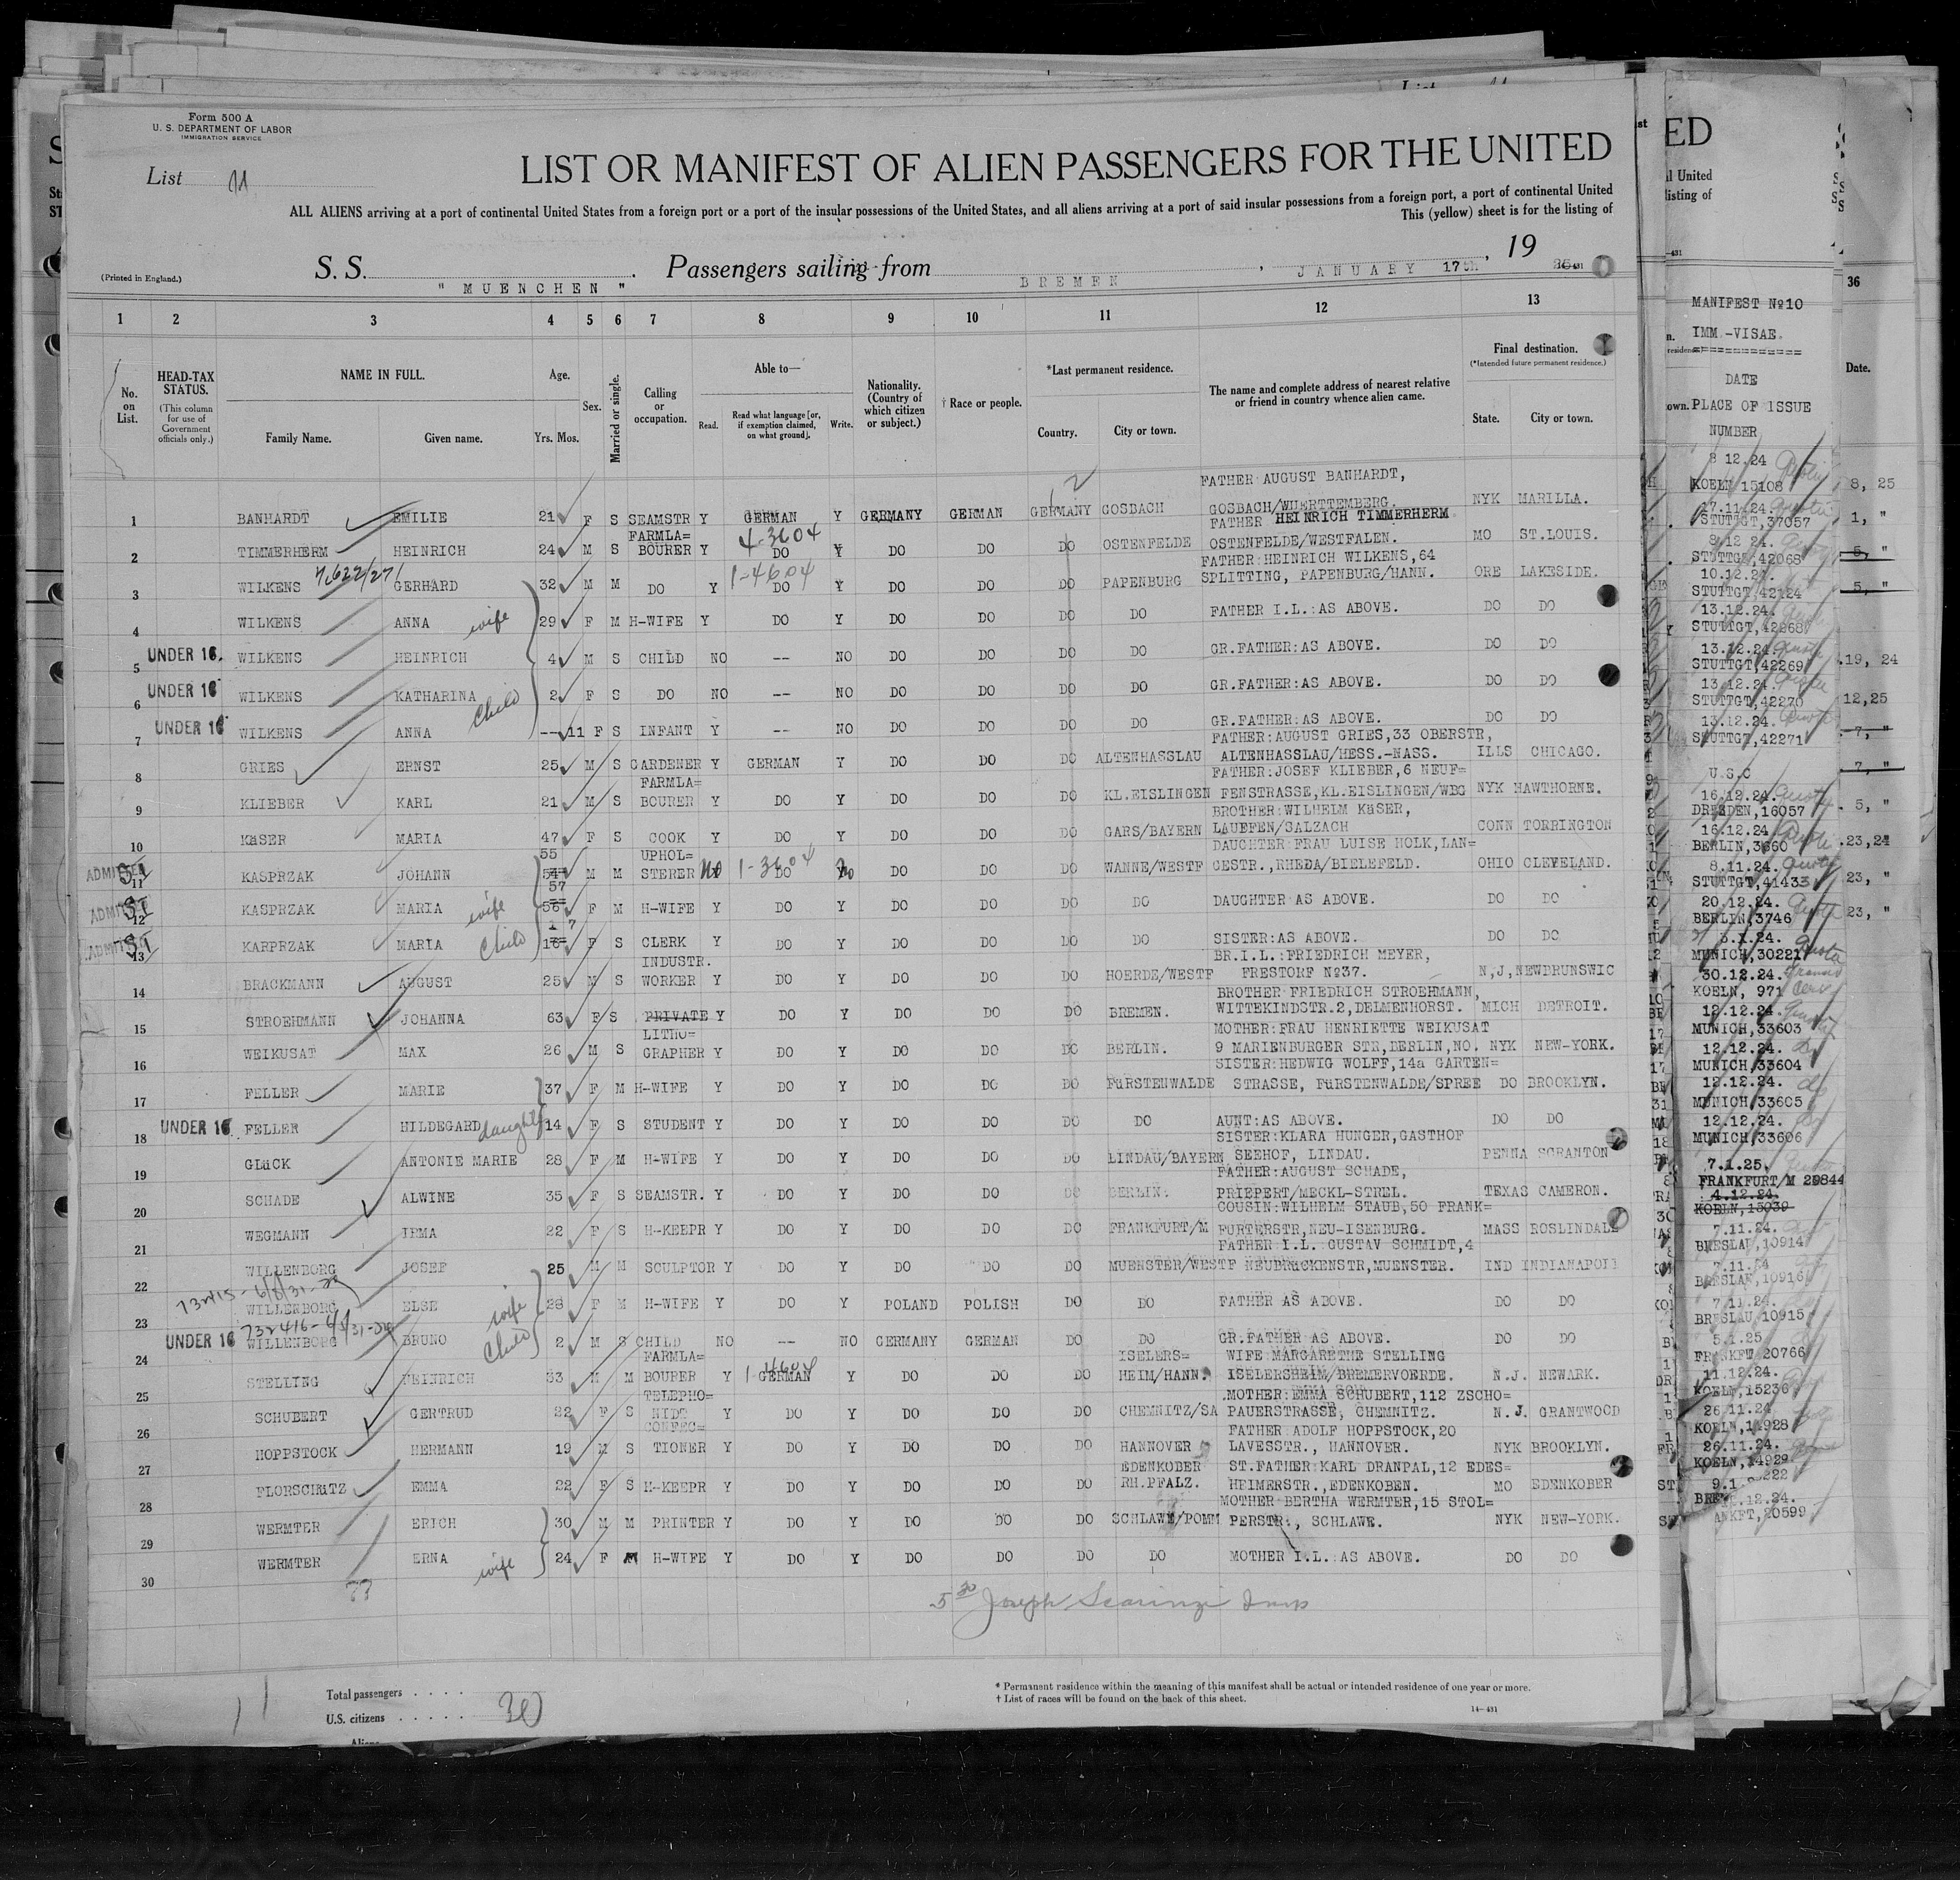 Form 500 A
U. S. DEPARTMENT OF LABOR
IMMIGRATION SERVICE
List 11
LIST OR MANIFEST OF ALIEN PASSENGERS FOR THE UNITED
ALL ALIENS arriving at a port of continental United States from a foreign port or a port of the insular possessions of the United States, and all aliens arriving at a port of said insular possessions from a foreign port, a port of continental United
This (yellow) sheet is for the listing of
(Printed in England.)
S. S. " MUENCHEN " . Passengers sailing from BREMEN , JANUARY 17th , 19
1 2 3 4 5 6 7 8 9 10 11 12 13
No. on List.
HEAD-TAX STATUS.
(This column for use of Government officials only.)
NAME IN FULL.
Family Name. Given name.
Age.
Yrs. Mos.
Sex.
Married or single.
Calling or occupation.
Able to—
Read. Read what language [or, if exemption claimed, on what ground]. Write.
Nationality. (Country of which citizen or subject.)
† Race or people.
*Last permanent residence.
Country. City or town.
The name and complete address of nearest relative or friend in country whence alien came.
Final destination.
(*Intended future permanent residence.)
State. City or town.
1 BANHARDT EMILIE 21 F S SEAMSTR Y GERMAN Y GERMANY GERMAN GERMANY GOSBACH FATHER AUGUST BANHARDT, GOSBACH/WUERTTEMBERG. NYK MARILLA.
2 TIMMERHERM HEINRICH 24 M S FARMLA= BOURER Y 4-3604 DO Y DO DO DO OSTENFELDE FATHER HEINRICH TIMMERHERM OSTENFELDE/WESTFALEN. MO ST.LOUIS.
3 WILKENS GERHARD 32 M M DO Y 1-4604 DO Y DO DO DO PAPENBURG FATHER:HEINRICH WILKENS,64 SPLITTING, PAPENBURG/HANN. ORE LAKESIDE.
4 WILKENS ANNA wife 29 F M H-WIFE Y DO Y DO DO DO DO FATHER I.L.:AS ABOVE. DO DO
5 UNDER 16. WILKENS HEINRICH 4 M S CHILD NO -- NO DO DO DO DO GR.FATHER:AS ABOVE. DO DO
6 UNDER 16 WILKENS KATHARINA 2 F S DO NO -- NO DO DO DO DO GR.FATHER:AS ABOVE. DO DO
7 UNDER 16 WILKENS ANNA Child -- 11 F S INFANT Y -- NO DO DO DO DO GR.FATHER:AS ABOVE. DO DO
8 GRIES ERNST 25 M S GARDENER Y GERMAN Y DO DO DO ALTENHASSLAU FATHER:AUGUST GRIES,33 OBERSTR, ALTENHASSLAU/HESS.-NASS. ILLS CHICAGO.
9 KLIEBER KARL 21 M S FARMLA= BOURER Y DO Y DO DO DO KL.EISLINGEN FATHER:JOSEF KLIEBER,6 NEUF= FENSTRASSE,KL.EISLINGEN/WBG NYK HAWTHORNE.
10 KäSER MARIA 47 F S COOK Y DO Y DO DO DO GARS/BAYERN BROTHER:WILHELM KäSER, LAUFFEN/SALZACH CONN TORRINGTON
11 ADMITTED SI KASPRZAK JOHANN 55 54 M M UPHOL= STERER No 1-3604 DO No DO DO DO WANNE/WESTF DAUGHTER FRAU LUISE HOLK,LAN= GESTR.,RHEDA/BIELEFELD. OHIO CLEVELAND.
12 ADMITTED SI KASPRZAK MARIA wife 57 56 F M H-WIFE Y DO Y DO DO DO DO DAUGHTER AS ABOVE. DO DO
13 ADMITTED SI KARPRZAK MARIA Child 17 16 F S CLERK Y DO Y DO DO DO DO SISTER:AS ABOVE. DO DO
14 BRACKMANN AUGUST 25 M S INDUSTR. WORKER Y DO Y DO DO DO HOERDE/WESTF BR.I.L.:FRIEDRICH MEYER, FRESTORF №37. N,J, NEWBRUNSWIC
15 STROEHMANN JOHANNA 63 F S PRIVATE Y DO Y DO DO DO BREMEN. BROTHER FRIEDRICH STROEHMANN, WITTEKINDSTR.2,DELMENHORST. MICH DETROIT.
16 WEIKUSAT MAX 26 M S LITHO= GRAPHER Y DO Y DO DO DO BERLIN. MOTHER:FRAU HENRIETTE WEIKUSAT 9 MARIENBURGER STR,BERLIN,NO. NYK NEW-YORK.
17 FELLER MARIE 37 F M H-WIFE Y DO Y DO DO DO FüRSTENWALDE SISTER:HEDWIG WOLFF,14a GARTEN= STRASSE, FüRSTENWALDE/SPREE DO BROOKLYN.
18 UNDER 16 FELLER HILDEGARD daughter 14 F S STUDENT Y DO Y DO DO DO DO AUNT:AS ABOVE. DO DO
19 GLüCK ANTONIE MARIE 28 F M H-WIFE Y DO Y DO DO DO LINDAU/BAYERN SISTER:KLARA HUNGER,GASTHOF SEEHOF, LINDAU. PENNA SCRANTON
20 SCHADE ALWINE 35 F S SEAMSTR. Y DO Y DO DO DO BERLIN. FATHER:AUGUST SCHADE, PRIEPERT/MECKL-STREL. TEXAS CAMERON.
21 WEGMANN IRMA 22 F S H-KEEPR Y DO Y DO DO DO FRANKFURT/M COUSIN:WILHELM STAUB,50 FRANK= FURTERSTR,NEU-ISENBURG. MASS ROSLINDALE
22 WILLENBORG JOSEF 25 M M SCULPTOR Y DO Y DO DO DO MUENSTER/WESTF FATHER I.L. GUSTAV SCHMIDT,4 NEUBRüCKENSTR,MUENSTER. IND INDIANAPOLI
23 WILLENBORG ELSE wife 28 F M H-WIFE Y DO Y POLAND POLISH DO DO FATHER AS ABOVE. DO DO
24 UNDER 16 WILLENBORG BRUNO Child 2 M S CHILD NO -- NO GERMANY GERMAN DO DO GR.FATHER AS ABOVE. DO DO
25 STELLING HEINRICH 33 M M FARMLA= BOURER Y 1-4604 GERMAN Y DO DO DO ISELERS= HEIM/HANN. WIFE MARGARETHE STELLING ISELERSHEIM/BREMERVOERDE. N.J. NEWARK.
26 SCHUBERT GERTRUD 22 F S TELEPHO= NIDS Y DO Y DO DO DO CHEMNITZ/SA MOTHER:EMMA SCHUBERT,112 ZSCHO= PAUERSTRASSE, CHEMNITZ. N.J. GRANTWOOD
27 HOPPSTOCK HERMANN 19 M S CONFEC= TIONER Y DO Y DO DO DO HANNOVER FATHER ADOLF HOPPSTOCK,20 LAVESSTR., HANNOVER. NYK BROOKLYN.
28 FLORSCHüTZ EMMA 22 F S H-KEEPR Y DO Y DO DO DO EDENKOBER RH.PFALZ. ST.FATHER:KARL DRANPAL,12 EDES= HEIMERSTR.,EDENKOBEN. MO EDENKOBER
29 WERMTER ERICH 30 M M PRINTER Y DO Y DO DO DO SCHLAWE/POMM MOTHER BERTHA WERMTER,15 STOL= PERSTR., SCHLAWE. NYK NEW-YORK.
30 WERMTER ERNA wife 24 F M H-WIFE Y DO Y DO DO DO DO MOTHER I.L. AS ABOVE. DO DO
Total passengers . . . .
U.S. citizens . . . . . 30
* Permanent residence within the meaning of this manifest shall be actual or intended residence of one year or more.
† List of races will be found on the back of this sheet.
14—431
ED
MANIFEST №10
IMM.-VISAE.
DATE
PLACE OF ISSUE
NUMBER
8 12.24
KOELN 15108
17.11.24.
STUTTGT,37057
8 12 24.
STUTTGT,42068
10.12.24.
STUTTGT,42124
13.12.24.
STUTTGT,42268
13.12.24.
STUTTGT,42269
13.12.24.
STUTTGT,42270
13.12.24.
STUTTGT,42271
U.S.C
16.12.24.
DRESDEN,16057
16.12.24
BERLIN,3660
8.11.24.
STUTTGT,41433
20.12.24.
BERLIN,3746
3.1.24.
MUNICH,30221
30.12.24.
KOELN, 971
12.12.24.
MUNICH,33603
12.12.24.
MUNICH,33604
12.12.24.
MUNICH,33605
12.12.24.
MUNICH,33606
7.1.25.
FRANKFURT/M 20844
4.12.24.
KOELN,15039
7.11.24.
BRESLAU,10914
7.11.24
BRESLAU,10916
7.11.24.
BRESLAU,10915
5.1.25
FRANKFT,20766
11.12.24.
KOELN,15236
26.11.24.
KOELN,14928
26.11.24.
KOELN,14929
36
Date.
8, 25
1, "
5, "
5, "
19, 24
12,25
7, "
7, "
5, "
23,24
23, "
23, "